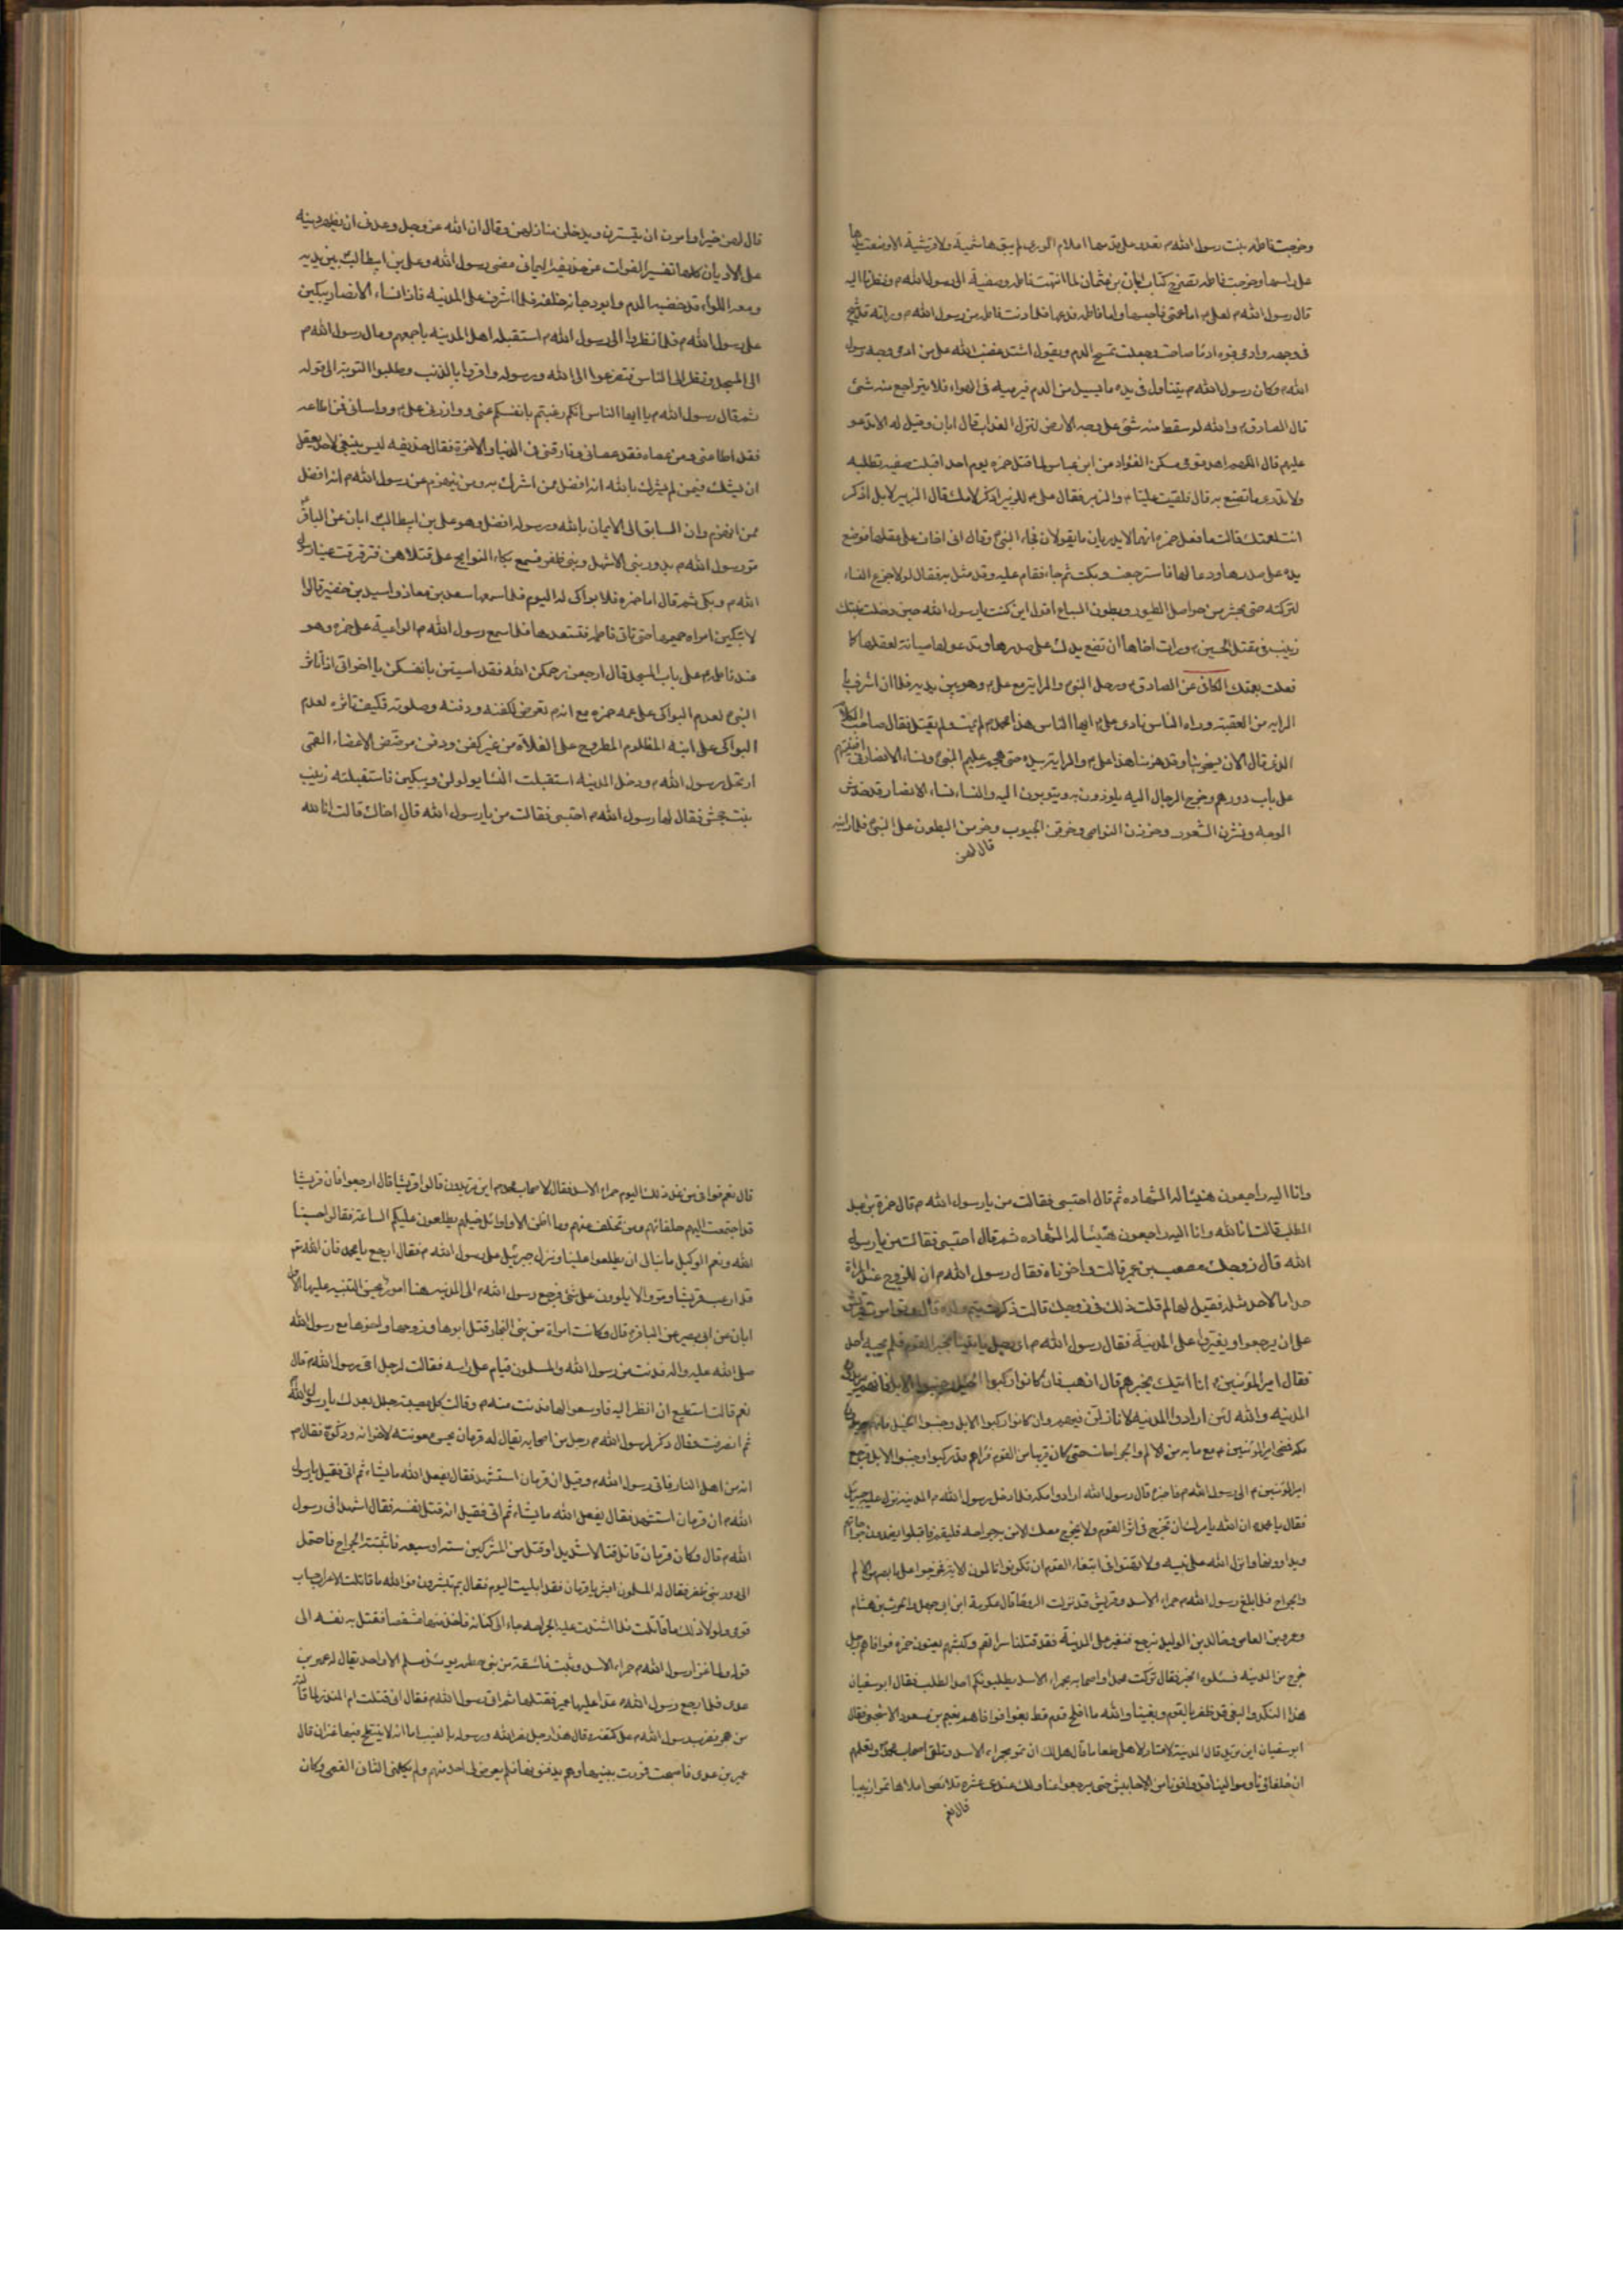 وخرجت فاطمه بنت رسول الله م تعدو على قدميها اعلام الورى لم يبق هاشمية ولا قرشية الا وضعت يدها
على راسها وخرجت فاطمه تصرخ كتاب ابان بن عثمان لما انتهت فاطمه وصفية الى رسول الله م ونظرتا اليه
قال رسول الله م لعلى م اما عمتى فاحبسها واما فاطمه فدعها فلما دنت فاطمه من رسول الله م وراته قد شج
فى وجهه وادمى فوه ادماء صاحت وجعلت تمسح الدم وتقول اشتد غضب الله على من ادمى وجه رسول
الله م وكان رسول الله م يتناول فى يده ما يسيل من الدم فيرميه فى الهواء فلا يتراجع منه شئ
قال الصادق م والله لو سقط منه شئ على وجه الارض لنزل العذاب قال ابان وقيل له الا تدعو
عليهم قال اللهم اهد قومى مسكن الفؤاد من ابن عباس لما قتل حمزه يوم احد اقبلت صفيه تطلبه
ولا تدرى ما تصنع به قال فلقيت عليا م والزبير فقال على م للزبير اذكر لامك قال الزبير لا بل اذكر
انت لعمتك قالت ما فعل حمزه انهما لا يدريان ما يقولان فجاء النبى وقال انى اخاف على عقلها فوضع
يده على صدرها ودعا لها فاسترجعت وبكت ثم جاء فقام عليه وقد مثل به فقال لولا جزع النساء
لتركته حتى يحشر من حواصل الطيور وبطون السباع اقول اين كنت يا رسول الله حين دخلت بنتك
زينب فى مقتل الحسين م ورات اخاها ان تضع يدك على صدرها وتدعو لها صيانة لعقلها كما
فعلت بعمتك الكافى عن الصادق م ورحل النبى والراية مع على م وهو بين يديه فلما ان اشرف با
الرايه من العقبة وراه الناس نادى على م ايها الناس هذا محمد م لم يمت ولم يقتل فقال صاحب الكلام
الذى قال الان يسخر بنا وقد هزمنا هذا على م والراية بيده حتى هجم عليهم النبى ونساء الانصار فى افنيتهم
على باب دورهم وخرج الرجال اليه يلوذون به ويتوبون اليه والنساء نساء الانصار قد خدشن
الوجوه ونشرن الشعور وجززن النواصى وخرقن الجيوب وخرمن البطون على النبى فلما راينه
قال لهن
قال لهن خيرا وامرهن ان يتسترن ويدخلن منازلهن وقال ان الله عز وجل وعدنى ان يظهر دينه
على الاديان كلها تفسير الفرات عن حذيفه اليمان مضى رسول الله وعلى بن ابيطالب بين يديه
ومعه اللواء قد خضبه الدم وابو دجانه خلفه فلما اشرف على المدينه فاذا نساء الانصار يبكين
على رسول الله م فلما نظروا الى رسول الله م استقبله اهل المدينه باجمعهم ومال رسول الله م
الى المسجد ونظر الى الناس فتضرعوا الى الله ورسوله واقروا بالذنب وطلبوا التوبة الى قوله
ثم قال رسول الله م يا ايها الناس انكم رغبتم بانفسكم عنى ووازرنى على م وواسانى فمن اطاعه
فقد اطاعنى ومن عصاه فقد عصانى وفارقنى فى الدنيا والاخرة فقال حذيفه ليس ينبغى لاحد يعقل
ان يشك فيمن لم يشرك بالله انه افضل ممن اشرك به ومن لم ينهزم عن رسول الله م انه افضل
ممن انهزم وان السابق الى الايمان بالله ورسوله افضل وهو على بن ابيطالب ابان عن الباقر
مر رسول الله م بدور بنى الاشهل وبنى ظفر فسمع بكاء النوايح على قتلاهن فترقرقت عينا رسول
الله م وبكى ثم قال اما حمزه فلا بواكى له اليوم فلما سمعها سعد بن معاذ واسيد بن حضير قالوا
لا تبكين امراه حميمها حتى تاتى فاطمه فتسعدها فلما سمع رسول الله م الواعية على حمزه وهو
عند فاطمه على باب المسجد قال ارجعن رحمكن الله فقد اسيتن بانفسكن يا اخوانى اذا تاثر
النبى لعدم البواكى على عمه حمزه مع انه م تعرض لكفنه ودفنه وصلوته فكيف تاثره لعدم
البواكى على ابنه المظلوم المطروح على الفلاة من غير كفن ودفن مرضض الاعضاء القمى
ارتحل رسول الله م ودخل المدينه استقبلت النساء يولولن ويبكين فاستقبلته زينب
بنت جحش فقال لها رسول الله م احتسبى فقالت من يا رسول الله قال اخاك قالت انا لله
وانا اليه راجعون هنيئا له الشهاده ثم قال احتسبى فقالت من يا رسول الله م قال حمزة بن عبد
المطلب قالت انا لله وانا اليه راجعون هنيئا له الشهاده ثم قال احتسبى فقالت من يا رسول
الله قال زوجك مصعب بن عمير قالت واحزناه فقال رسول الله م ان للزوج عند المراة
حدا ما لاحد مثله فقيل لها لم قلت ذلك فى زوجك قالت ذكرت يتم ولده قال وتوامرت قريش
على ان يرجعوا ويغيروا على المدينة فقال رسول الله م اى رجل ياتينا بخبر القوم فلم يجبه احد
فقال امير المؤمنين م انا اتيك بخبرهم قال اذهب فان كانوا ركبوا الخيل وجنبوا الابل فانهم يريدون
المدينه والله لئن ارادوا المدينه لانازلن فيهم وان كانوا ركبوا الابل وجنبوا الخيل فانهم يريدون
مكه فمضى امير المؤمنين م مع ما به من الالم والجراحات حتى كان قريبا من القوم فراهم قد ركبوا وجنبوا الابل فرجع
امير المؤمنين م الى رسول الله م فاخبره قال رسول الله ارادوا مكه فلما دخل رسول الله م المدينه نزل عليه جبرئيل
فقال يا محمد ان الله يامرك ان تخرج فى اثر القوم ولا يخرج معك الا من به جراحه فليقم فاقبلوا يضمدون جراحاتهم
ويداوونها وانزل الله على نبيه ولا تهنوا فى ابتغاء القوم ان تكونوا تالمون الاية فخرجوا على ما بهم من الالم
والجراح فلما بلغ رسول الله م حمراء الاسد وقريش قد نزلت الروحا قال عكرمة ابن ابى جهل والحرث بن هشام
وعمرو بن العاص وخالد بن الوليد نرجع فنغير على المدينة فقد قتلنا سراتهم وكبشهم يعنون حمزه فوافاهم رجل
خرج من المدينه فسئلوه الخبر فقال تركت محمدا واصحابه بحمراء الاسد يطلبونكم احد الطلب فقال ابو سفيان
هذا النكد والبغى قد ظفرنا بالقوم وبغينا والله ما افلح قوم قط بغوا فوافاهم نعيم بن مسعود الاشجعى فقال
ابو سفيان اين تريد قال المدينة لامتار لاهلى طعاما قال هل لك ان تمر بحمراء الاسد وتلقى اصحاب محمد وتعلمهم
ان حلفائنا وموالينا قد وافونا من الاحابيش حتى يرجعوا عنا ولك عندى عشرة قلائص املاها تمرا وزبيبا
قال نعم
قال نعم فوافى من غد ذلك اليوم حمراء الاسد فقال لاصحاب محمد م اين تريدون قالوا قريشا قال ارجعوا فان قريشا
قد اجتمعت اليهم حلفائهم ومن تخلف عنهم وما اظن الا واوائل خيلهم يطلعون عليكم الساعة فقالوا حسبنا
الله ونعم الوكيل ما نبالى ان يطلعوا علينا ونزل جبرئيل على رسول الله م فقال ارجع يا محمد فان الله تع
قد ارعب قريشا ومروا لا يلوون على شئ فرجع رسول الله م الى المدينه هنا امور يحسن التنبيه عليها الاول
ابان عن ابى بصير عن الباقر م قال وكانت امراة من بنى النجار قتل ابوها وزوجها واخوها مع رسول الله
صلى الله عليه واله فدنت من رسول الله والمسلمون قيام على راسه فقالت لرجل احى رسول الله م قال
نعم قالت استطيع ان انظر اليه فاوسعوا لها فدنت منه م وقالت كل مصيبة جلل بعدك يا رسول الله
ثم انصرفت فقال ذكر لرسول الله م رجل من اصحابه يقال له قزمان بحسن معونته لاخوانه وذكوه فقال م
انه من اهل النار فاتى رسول الله م وقيل ان قزمان استشهد فقال يفعل الله ما يشاء ثم اتى فقيل يا رسول
الله م ان قزمان استشهد فقال يفعل الله ما يشاء ثم اتى فقيل انه قتل نفسه فقال اشهد انى رسول
الله م قال وكان قزمان قاتل قتالا شديدا وقتل من المشركين ستة او سبعه فاثبتته الجراح فاحتمل
الى دور بنى ظفر فقال له المسلمون ابشر يا قزمان فقد ابليت اليوم فقال بم تبشرون فو الله ما قاتلت الا عن احساب
قومى ولولا ذلك ما قاتلت فلما اشتدت عليه الجراحه جاء الى كنانه فاخذ منها مشقصا فقتل به نفسه الى
قوله ولما غزا رسول الله م حمراء الاسد وثبت فاسقة من بنى خطمه يومئذ مسلم الا واحد يقال له عمير بن
عدى فلما رجع رسول الله م غدا عليها عمير فقتلها ثم اتى رسول الله م فقال انى قتلت ام المنذر لما قالته
من هجر فضرب رسول الله م على كتفه وقال هذا رجل نصر الله ورسوله بالغيب اما انه لا ينتطح فيها عنزان قال
عمير بن عدى فاصبحت فمررت ببنيها وهم يدفنونها فلم يعرض لى احد منهم ولم يكلمنى الثانى القمى وكان